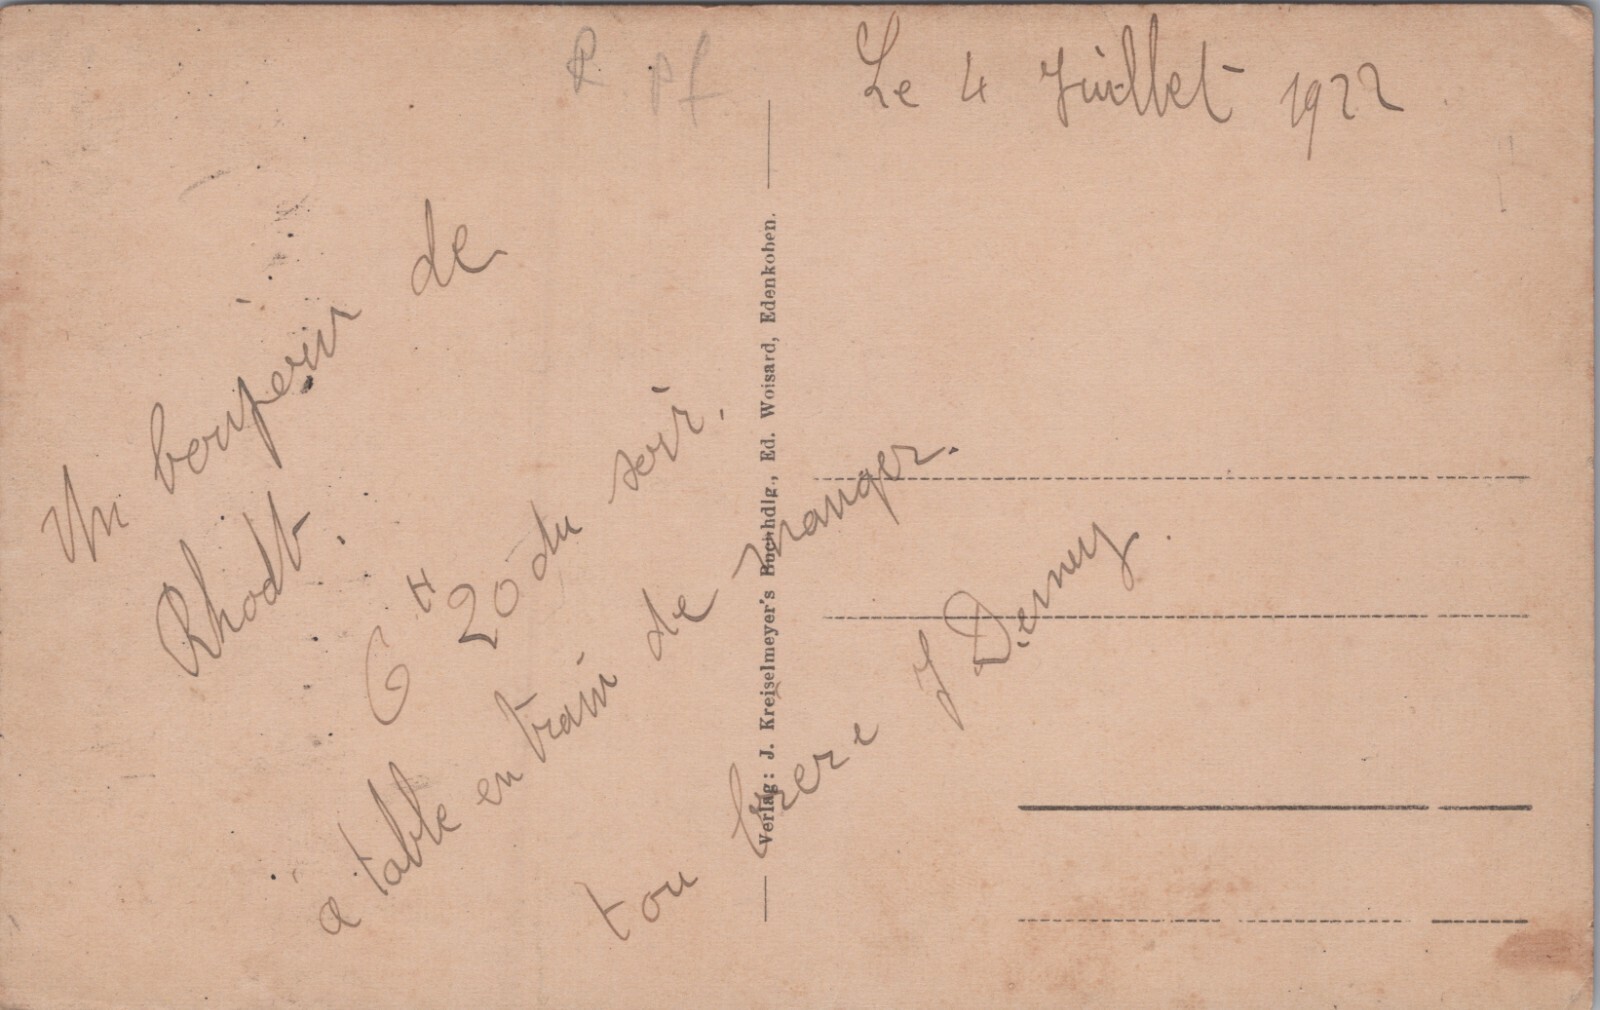 R Pf
Le 4 Juillet 1922
Un de
Rhodt.
6 H 20 du soir.
a table en train de manger.
ton frere J Derney.
Verlag: J. Kreiselmeyer's Buchhdlg., Ed. Woisard, Edenkoben.